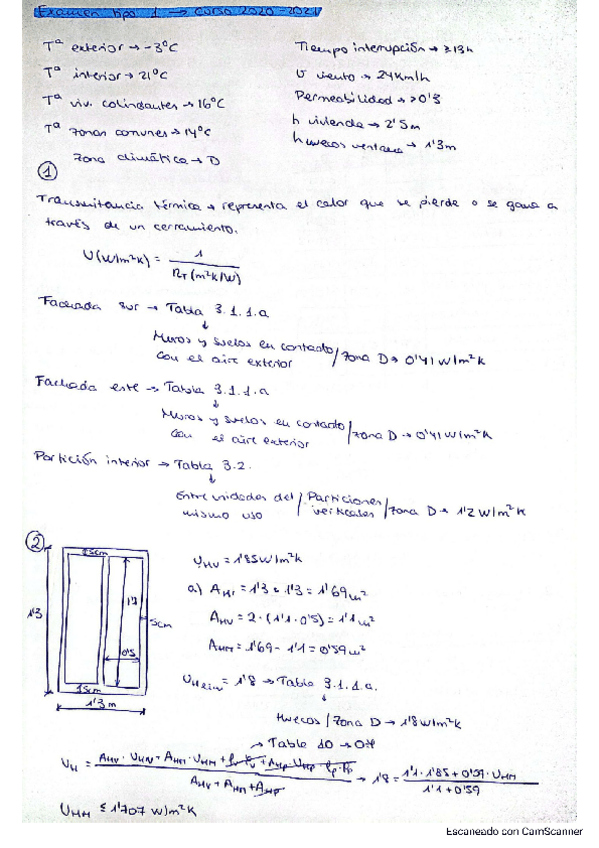 Examen tipo 1 → curso 2020-2021
Tª exterior → -3°C
Tª interior → 21°C
Tª viv. colindantes → 16°C
Tª zonas comunes → 14°C
zona climática → D
Tiempo interrupción → ≥13h
v viento → 24Km/h
Permeabilidad → >0'3
h vivienda → 2'5m
h huecos ventana → 1'3m
1
Transmitancia térmica → representa el calor que se pierde o se gana a
través de un cerramiento.
U(W/m²K) = 1 / RT (m²K/W)
Fachada sur → Tabla 3.1.1.a
↓
Muros y suelos en contacto
con el aire exterior / zona D → 0'41 W/m²K
Fachada este → Tabla 3.1.1.a
↓
Muros y suelos en contacto
con el aire exterior / zona D → 0'41 W/m²K
Partición interior → Tabla 3.2.
↓
Entre unidades del / Particiones / zona D → 1'2 W/m²K
mismo uso verticales
2
15cm
1'3
1'1
5cm
0'5
15cm
1'3 m
UHV = 1'85 W/m²K
a) AH = 1'3 · 1'3 = 1'69 m²
AHV = 2 · (1'1 · 0'5) = 1'1 m²
AHM = 1'69 - 1'1 = 0'59 m²
UHlim = 1'8 → Tabla 3.1.1.a.
↓
Huecos / zona D → 1'8 W/m²K
→ Table 10 →
UH = AHV · UHV + AHM · UHM + lp · ψp + AHP · UHP + lp · ψp / AHV + AHM + AHP → 1'8 = 1'1 · 1'85 + 0'59 · UHM / 1'1 + 0'59
UHM ≤ 1'707 W/m²K
Escaneado con CamScanner